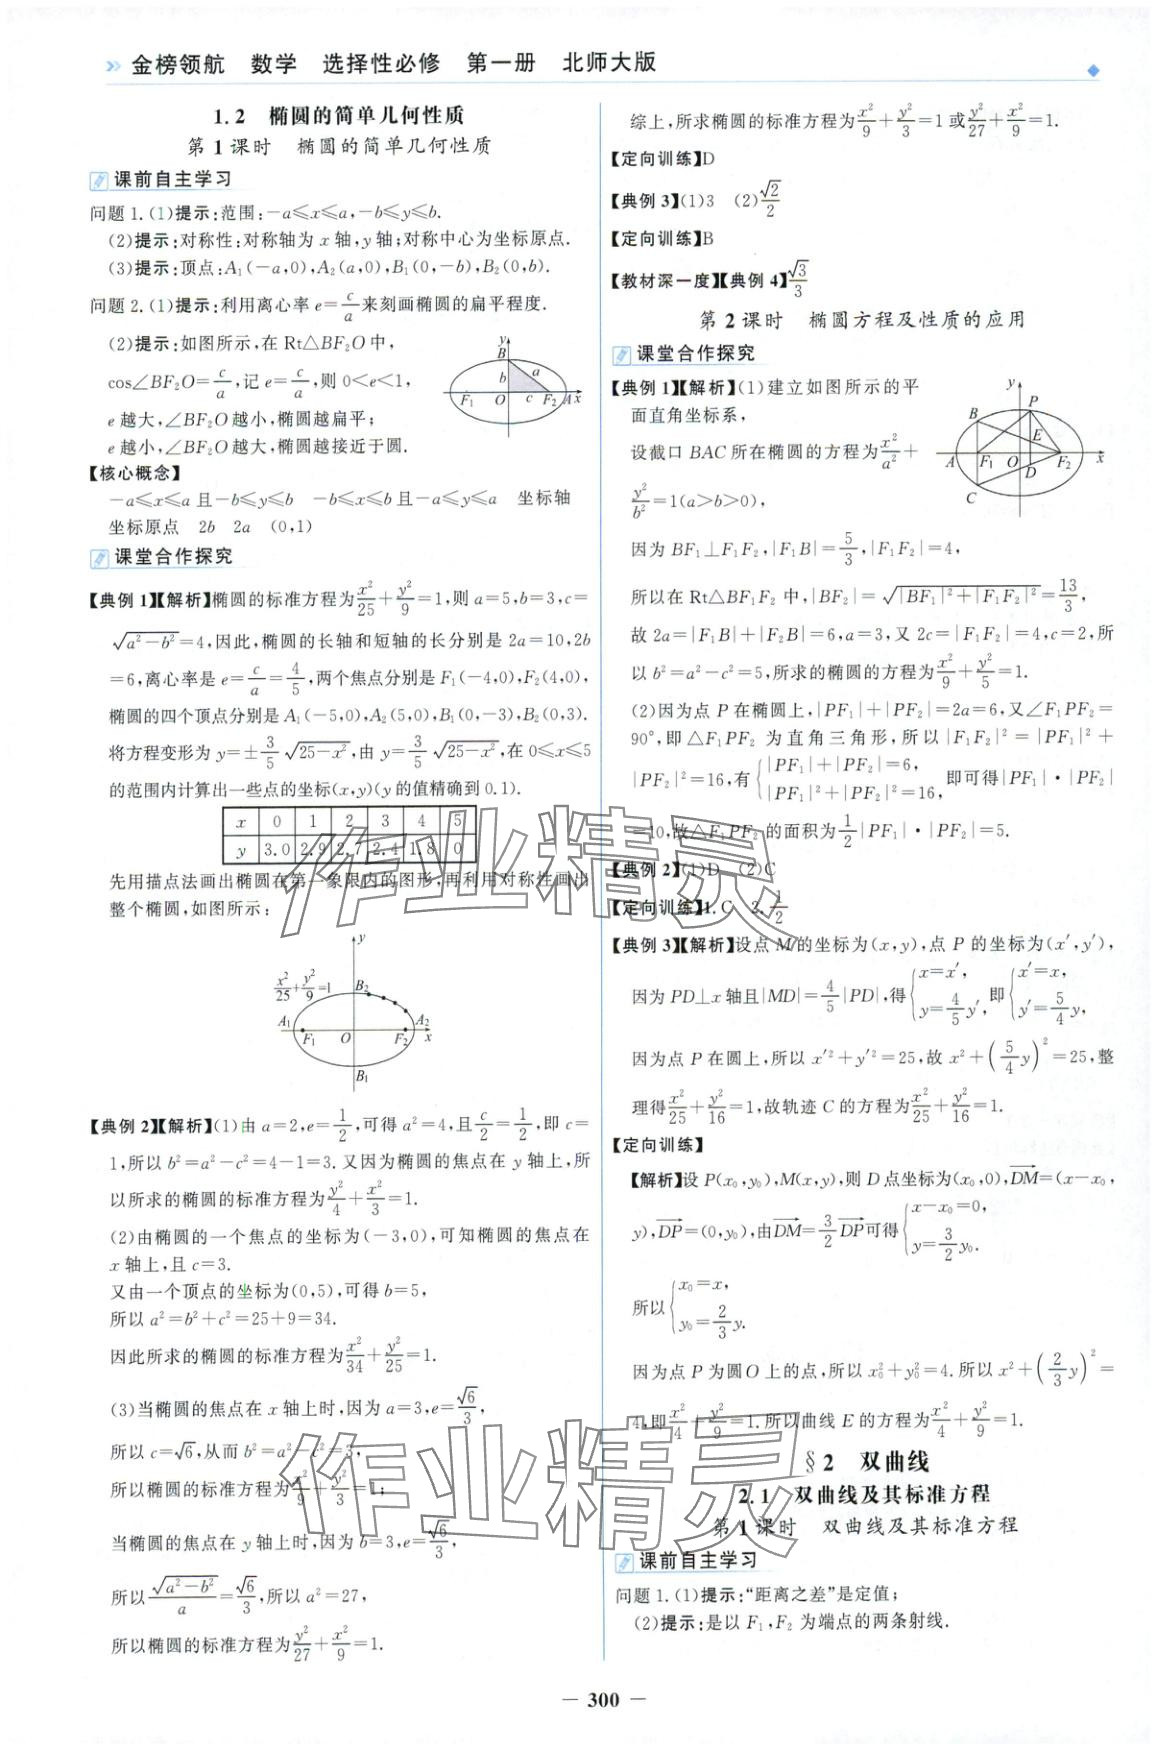 金榜领航　数学　选择性必修　第一册　北师大版
1.2　椭圆的简单几何性质
第1课时　椭圆的简单几何性质
课前自主学习
问题1.(1)提示:范围:-a≤x≤a,-b≤y≤b.
(2)提示:对称性:对称轴为x轴,y轴;对称中心为坐标原点.
(3)提示:顶点:A₁(-a,0),A₂(a,0),B₁(0,-b),B₂(0,b).
问题2.(1)提示:利用离心率e=c/a来刻画椭圆的扁平程度.
(2)提示:如图所示,在Rt△BF₂O中,
cos∠BF₂O=c/a,记e=c/a,则0<e<1,
e越大,∠BF₂O越小,椭圆越扁平;
e越小,∠BF₂O越大,椭圆越接近于圆.
y B b a F₁ O c F₂ A x
【核心概念】
-a≤x≤a且-b≤y≤b　-b≤x≤b且-a≤y≤a　坐标轴
坐标原点　2b　2a　(0,1)
课堂合作探究
【典例1】【解析】椭圆的标准方程为x²/25+y²/9=1,则a=5,b=3,c=
√(a²-b²)=4,因此,椭圆的长轴和短轴的长分别是2a=10,2b
=6,离心率是e=c/a=4/5,两个焦点分别是F₁(-4,0),F₂(4,0),
椭圆的四个顶点分别是A₁(-5,0),A₂(5,0),B₁(0,-3),B₂(0,3).
将方程变形为y=±3/5√(25-x²),由y=3/5√(25-x²),在0≤x≤5
的范围内计算出一些点的坐标(x,y)(y的值精确到0.1).
x 0 1 2 3 4 5
y 3.0 2.9 2.7 2.4 1.8 0
先用描点法画出椭圆在第一象限内的图形,再利用对称性画出
整个椭圆,如图所示:
x²/25+y²/9=1 y B₂ A₁ F₁ O F₂ A₂ x B₁
【典例2】【解析】(1)由a=2,e=1/2,可得a²=4,且c/2=1/2,即c=
1,所以b²=a²-c²=4-1=3.又因为椭圆的焦点在y轴上,所
以所求的椭圆的标准方程为y²/4+x²/3=1.
(2)由椭圆的一个焦点的坐标为(-3,0),可知椭圆的焦点在
x轴上,且c=3.
又由一个顶点的坐标为(0,5),可得b=5,
所以a²=b²+c²=25+9=34.
因此所求的椭圆的标准方程为x²/34+y²/25=1.
(3)当椭圆的焦点在x轴上时,因为a=3,e=√6/3,
所以c=√6,从而b²=a²-c²=3,
所以椭圆的标准方程为x²/9+y²/3=1;
当椭圆的焦点在y轴上时,因为b=3,e=√6/3,
所以√(a²-b²)/a=√6/3,所以a²=27,
所以椭圆的标准方程为y²/27+x²/9=1.
综上,所求椭圆的标准方程为x²/9+y²/3=1或y²/27+x²/9=1.
【定向训练】D
【典例3】(1)3　(2)√2/2
【定向训练】B
【教材深一度】【典例4】√3/3
第2课时　椭圆方程及性质的应用
课堂合作探究
【典例1】【解析】(1)建立如图所示的平
面直角坐标系,
设截口BAC所在椭圆的方程为x²/a²+
y²/b²=1(a>b>0),
y B P E A F₁ O D F₂ x C
因为BF₁⊥F₁F₂,|F₁B|=5/3,|F₁F₂|=4,
所以在Rt△BF₁F₂中,|BF₂|=√(|BF₁|²+|F₁F₂|²)=13/3,
故2a=|F₁B|+|F₂B|=6,a=3,又2c=|F₁F₂|=4,c=2,所
以b²=a²-c²=5,所求的椭圆的方程为x²/9+y²/5=1.
(2)因为点P在椭圆上,|PF₁|+|PF₂|=2a=6,又∠F₁PF₂=
90°,即△F₁PF₂为直角三角形,所以|F₁F₂|²=|PF₁|²+
|PF₂|²=16,有{|PF₁|+|PF₂|=6, |PF₁|²+|PF₂|²=16,即可得|PF₁|·|PF₂|
=10,故△F₁PF₂的面积为1/2|PF₁|·|PF₂|=5.
【典例2】(1)D　(2)C
【定向训练】1.C　2.1/2
【典例3】【解析】设点M的坐标为(x,y),点P的坐标为(x′,y′),
因为PD⊥x轴且|MD|=4/5|PD|,得{x=x′, y=4/5y′,即{x′=x, y′=5/4y,
因为点P在圆上,所以x′²+y′²=25,故x²+(5/4y)²=25,整
理得x²/25+y²/16=1,故轨迹C的方程为x²/25+y²/16=1.
【定向训练】
【解析】设P(x₀,y₀),M(x,y),则D点坐标为(x₀,0),DM→=(x-x₀,
y),DP→=(0,y₀),由DM→=3/2DP→可得{x-x₀=0, y=3/2y₀.
所以{x₀=x, y₀=2/3y.
因为点P为圆O上的点,所以x₀²+y₀²=4.所以x²+(2/3y)²=
4,即x²/4+y²/9=1.所以曲线E的方程为x²/4+y²/9=1.
§2　双曲线
2.1　双曲线及其标准方程
第1课时　双曲线及其标准方程
课前自主学习
问题1.(1)提示:“距离之差”是定值;
(2)提示:是以F₁,F₂为端点的两条射线.
— 300 —
作业精灵
作业精灵